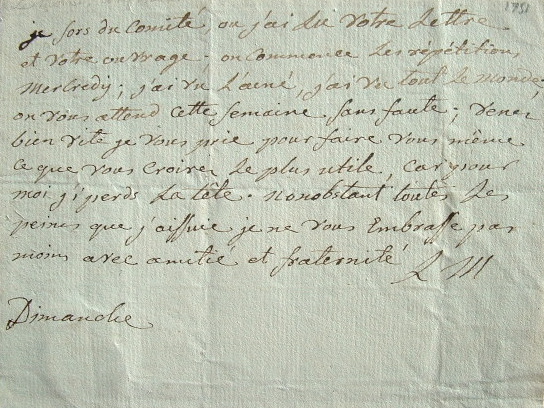 1791
je sors du Comité, ou j'ai lu votre Lettre
et votre ouvrage. on commence les répétitions
Mercredy; j'ai vu L'ainé, j'ai vu tout le monde.
on vous attend cette semaine sans faute; venez
bien vite je vous prie pour faire vous même
ce que vous croirez le plus utile, car pour
moi j'i perds la tête. nonobstant toutes les
peines que j'aie je ne vous Embrasse pas
moins avec amitié et fraternité L M
Dimanche